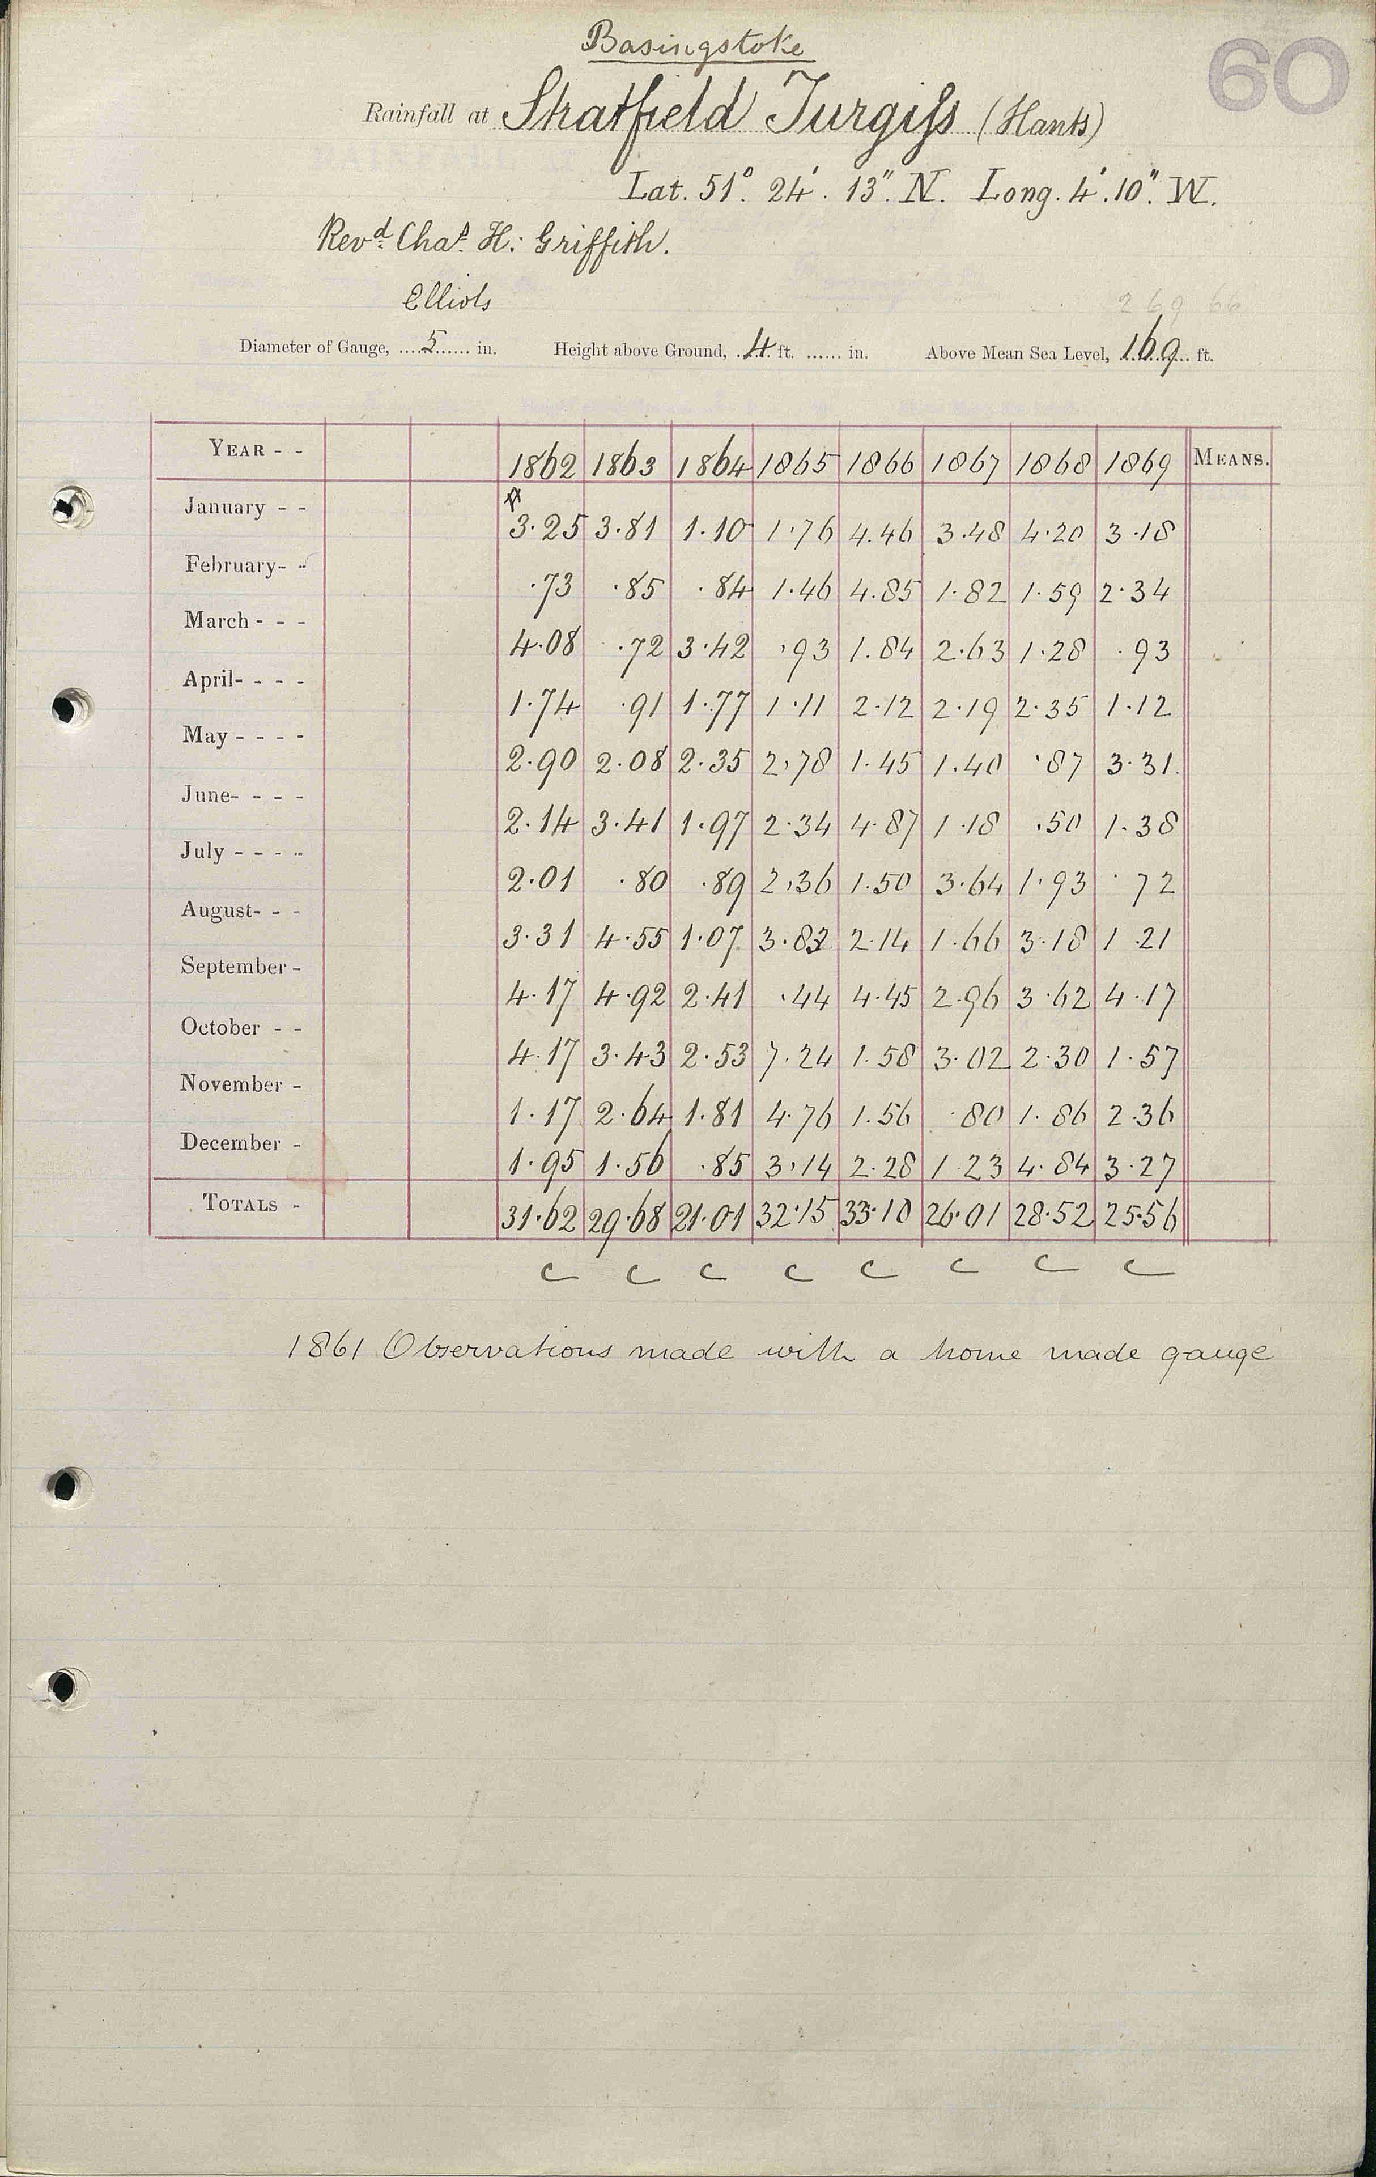 Basingstoke
60
Rainfall at Stratfield Turgiss (Hants)
Lat. 51°. 24'. 13". N. Long. 4'. 10". W.
Revd. Chas. H: Griffith.
Elliots
269 66
Diameter of Gauge, 5 in. Height above Ground, 4 ft. ...... in. Above Mean Sea Level, 169 ft.
YEAR - - 1862 1863 1864 1865 1866 1867 1868 1869 MEANS.
January - - 3.25 3.81 1.10 1.76 4.46 3.48 4.20 3.18
February- - .73 .85 .84 1.46 4.85 1.82 1.59 2.34
March - - - 4.08 .72 3.42 .93 1.84 2.63 1.28 .93
April- - - - 1.74 .91 1.77 1.11 2.12 2.19 2.35 1.12
May - - - - 2.90 2.08 2.35 2.78 1.45 1.40 .87 3.31
June- - - - 2.14 3.41 1.97 2.34 4.87 1.18 .50 1.38
July - - - - 2.01 .80 .89 2.36 1.50 3.64 1.93 .72
August- - - 3.31 4.55 1.07 3.83 2.14 1.66 3.18 1.21
September - 4.17 4.92 2.41 .44 4.45 2.96 3.62 4.17
October - - 4.17 3.43 2.53 7.24 1.58 3.02 2.30 1.57
November - 1.17 2.64 1.81 4.76 1.56 .80 1.86 2.36
December - 1.95 1.56 .85 3.14 2.28 1.23 4.84 3.27
TOTALS - 31.62 29.68 21.01 32.15 33.10 26.01 28.52 25.56
c c c c c c c c
1861 Observations made with a home made gauge